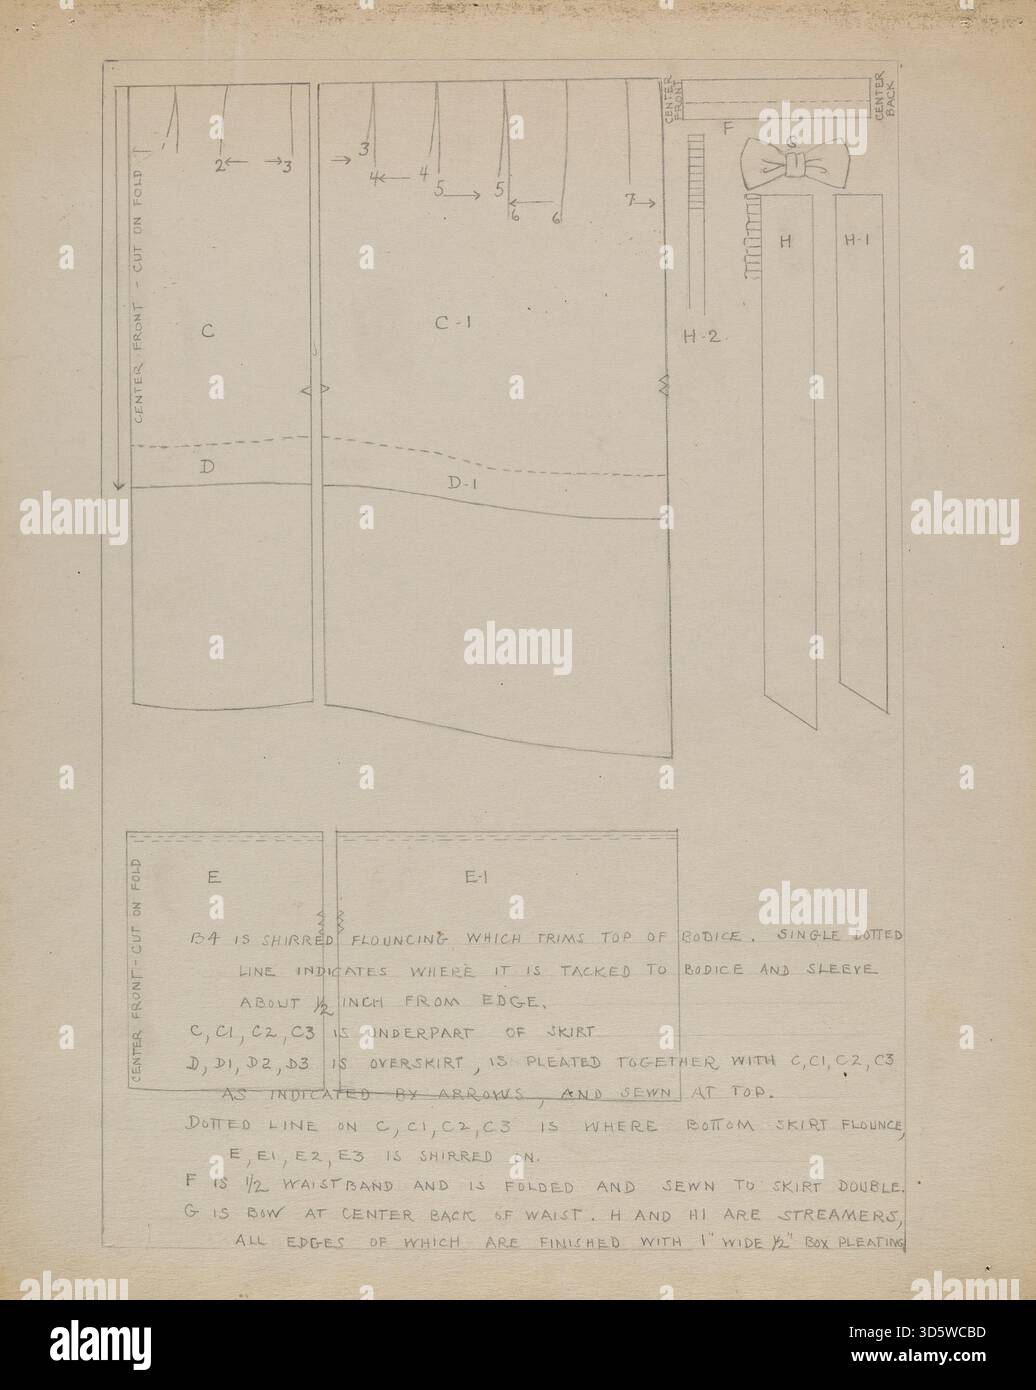 CENTER FRONT
CENTER BACK
F
G
2
3
3
4
4
5
5
6
6
7
CENTER FRONT - CUT ON FOLD
H
H-1
C
C-1
H-2
D
D-1
CENTER FRONT - CUT ON FOLD
E
E-1
B4 IS SHIRRED FLOUNCING WHICH TRIMS TOP OF BODICE. SINGLE DOTTED
LINE INDICATES WHERE IT IS TACKED TO BODICE AND SLEEVE
ABOUT 1/2 INCH FROM EDGE.
C, C1, C2, C3 IS UNDERPART OF SKIRT
D, D1, D2, D3 IS OVERSKIRT, IS PLEATED TOGETHER WITH C, C1, C2, C3
AS INDICATED BY ARROWS, AND SEWN AT TOP.
DOTTED LINE ON C, C1, C2, C3 IS WHERE BOTTOM SKIRT FLOUNCE,
E, E1, E2, E3 IS SHIRRED ON.
F IS 1/2 WAISTBAND AND IS FOLDED AND SEWN TO SKIRT DOUBLE.
G IS BOW AT CENTER BACK OF WAIST. H AND H1 ARE STREAMERS,
ALL EDGES OF WHICH ARE FINISHED WITH 1" WIDE 1/2" BOX PLEATING
alamy
alamy
alamy
alamy
alamy
Image ID: 3D5WCBD
www.alamy.com